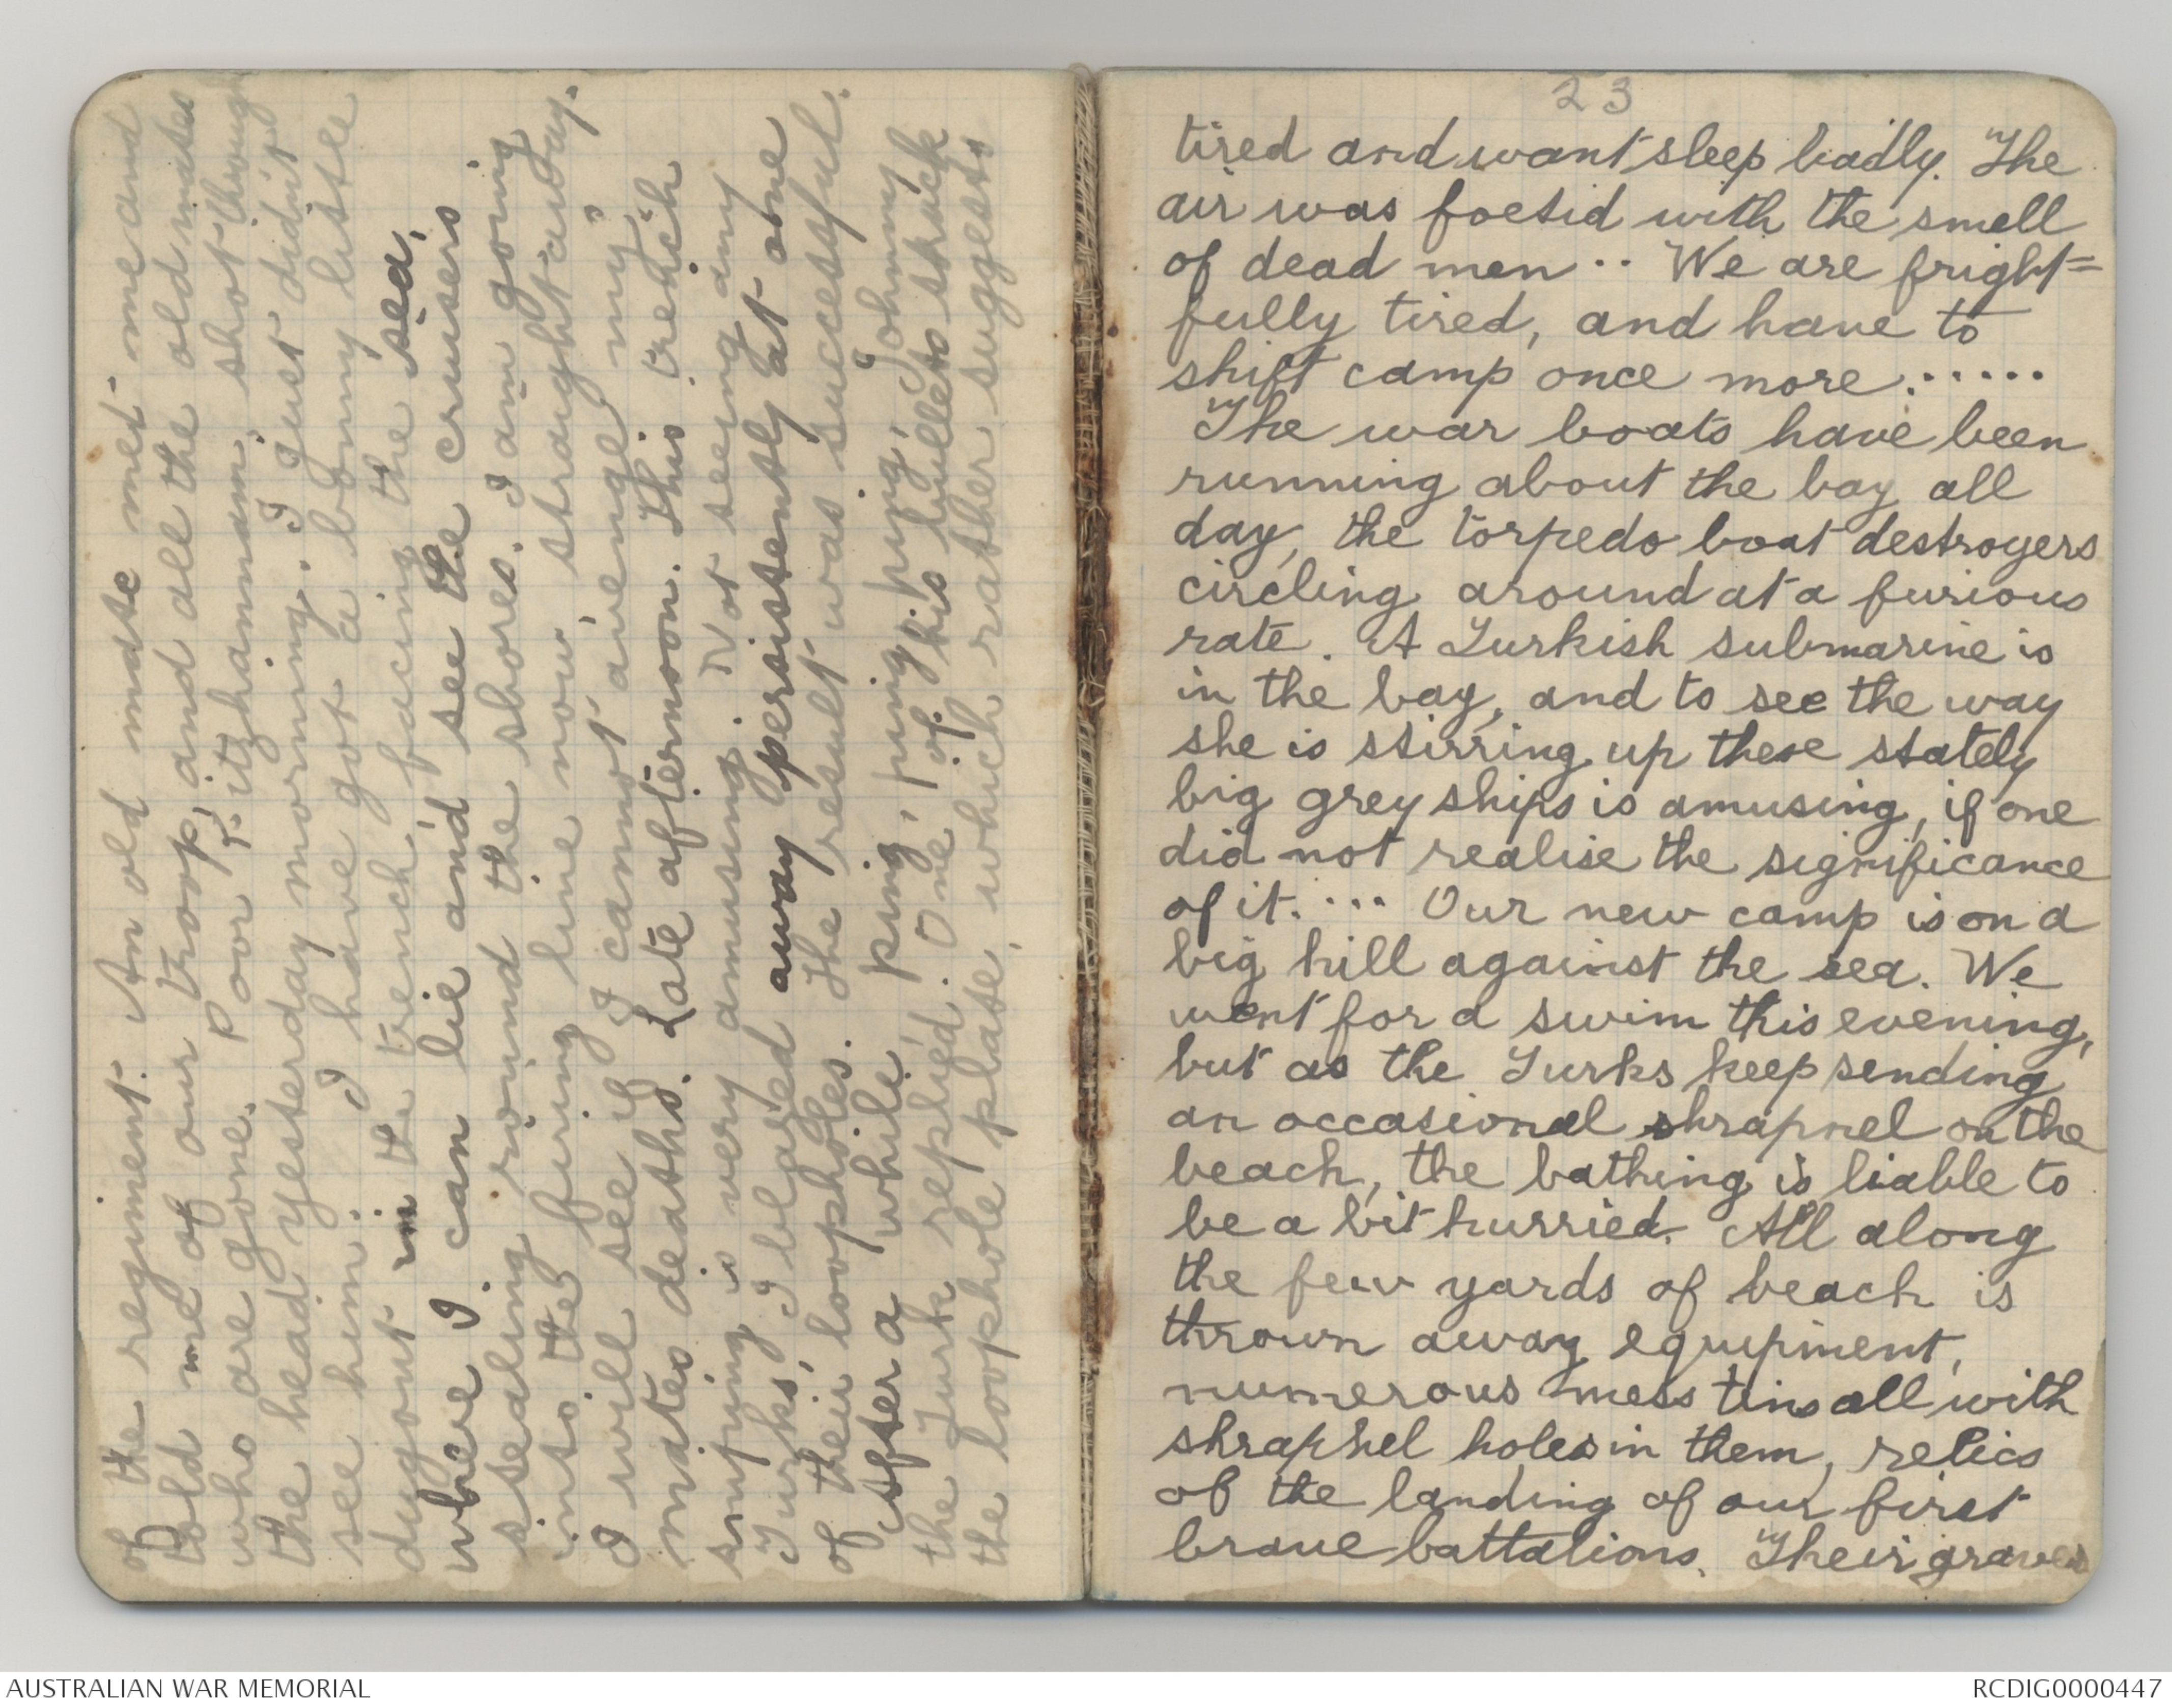 of the regiment. An old mate met me and
told me of our troop, and all the old mates
who are gone. Poor Fitzhannam, shot through
the head yesterday morning. I just didn't
see him. I have got a bonny little
dugout in the trench, facing the sea,
where I can lie and see the cruisers
stealing round the shores. I am going
into the firing line now, straight away.
I will see if I cannot avenge my
mates deaths. Late afternoon. This trench
sniping is very amusing. Not seeing any
Turks, I blazed away persistently at one
of their loopholes. The result was successful.
After a while, ping, ping, ping, Johnny
the Turk replied. One of his bullets struck
the loophole plate, which rather suggests
23
tired and want sleep badly. The
air was foetid with the smell
of dead men .. We are fright=
fully tired, and have to
shift camp once more......
The war boats have been
running about the bay all
day, the torpedo boat destroyers
circling around at a furious
rate. A Turkish submarine is
in the bay, and to see the way
she is stirring up these stately
big grey ships is amusing, if one
did not realise the significance
of it.... Our new camp is on a
big hill against the sea. We
went for a swim this evening,
but as the Turks keep sending
an occasional shrapnel on the
beach, the bathing is liable to
be a bit hurried. All along
the few yards of beach is
thrown away equipment,
numerous mess tins all with
shraphel holes in them, relics
of the landing of our first
brave battalions. Their graves
AUSTRALIAN WAR MEMORIAL
RCDIG0000447